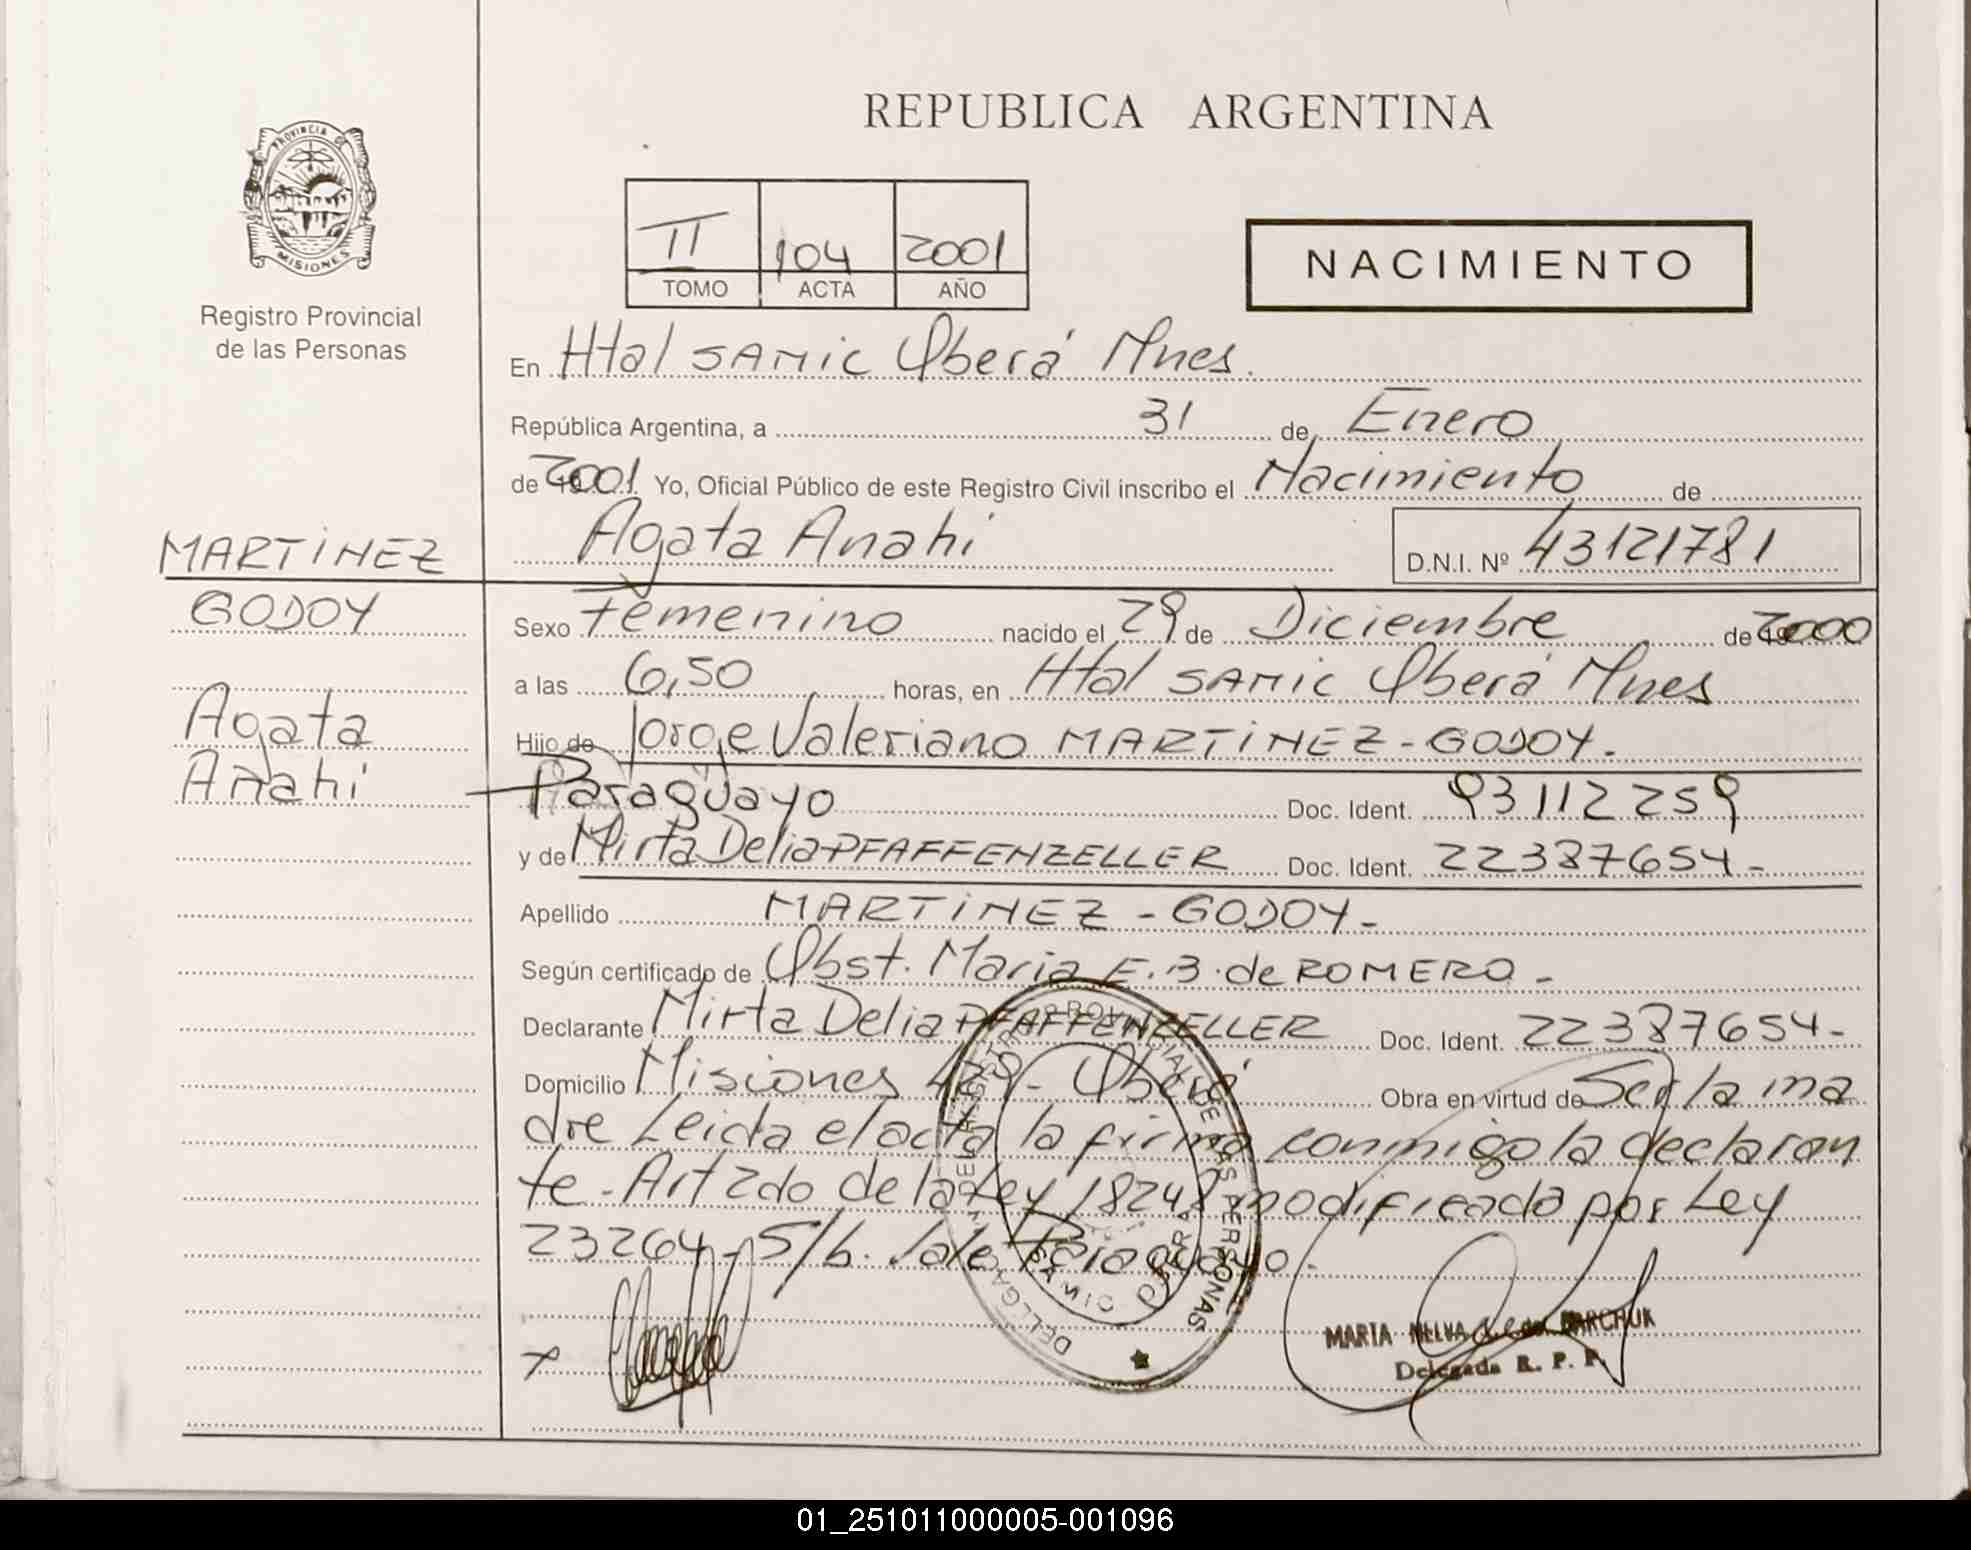 REPUBLICA ARGENTINA
PROVINCIA DE
MISIONES
Registro Provincial
de las Personas
II 104 2001
TOMO ACTA AÑO
NACIMIENTO
En Htal SAMIC Oberá Mnes.
República Argentina, a 31 de Enero
de 2001 Yo, Oficial Público de este Registro Civil inscribo el Nacimiento de
Agata Anahi D.N.I. Nº 43121781
MARTINEZ
GODOY
Agata
Anahi
Sexo Femenino nacido el 29 de Diciembre de 2000
a las 6,50 horas, en Htal SAMIC Oberá Mnes
Hijo de Jorge Valeriano MARTINEZ - GODOY.
Paraguayo Doc. Ident. 93112259
y de Mirta Delia PFAFFENZELLER Doc. Ident. 22387654-
Apellido MARTINEZ - GODOY-
Según certificado de Obst. Maria E. B. de ROMERO -
Declarante Mirta Delia PFAFFENZELLER Doc. Ident. 22387654-
Domicilio Misiones 429- Oberá Obra en virtud de Ser la ma
dre Leida el acta la firma conmigo la declaran
te. Art 2do de la Ley 18248 modificada por Ley
23264 - S/b. Vale Paraguayo.
REGISTRO PROVINCIAL DE LAS PERSONAS
SAMIC OBERA
x
MARTA NELVA MARCHUK
Delegada R. P. P.
01_251011000005-001096